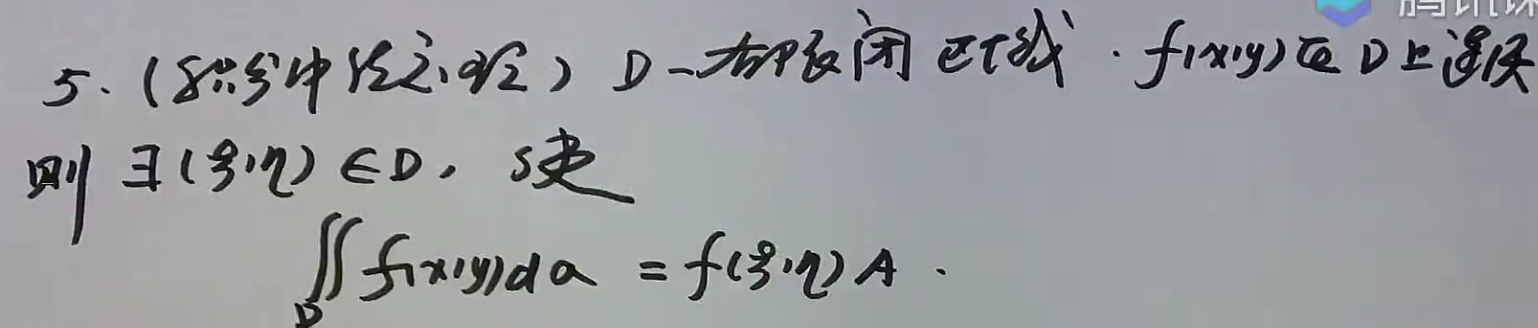 腾讯课
5.(积分中值定理) D-有界闭区域.f(x,y)在D上连续
则 ∃(ξ,η)∈D, 使
∬_D f(x,y)dσ = f(ξ,η)A.